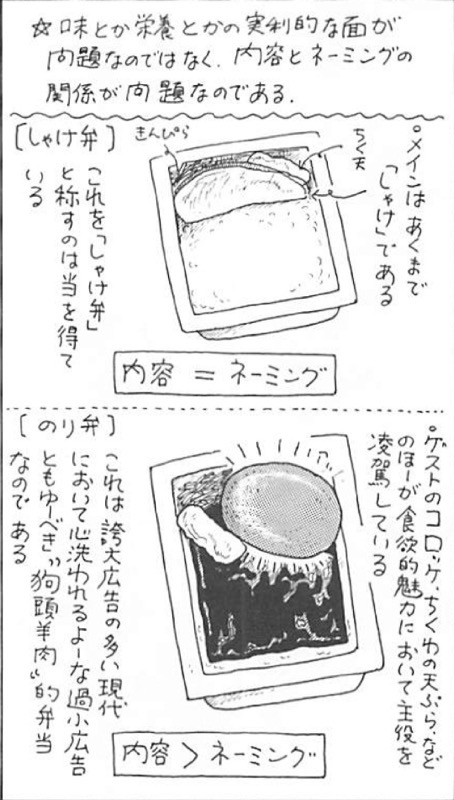 ☆味とか栄養とかの実利的な面が
問題なのではなく、内容とネーミングの
関係が問題なのである。
[しゃけ弁]
きんぴら
ちく天
°メインはあくまで
「しゃけ」である
これを「しゃけ弁」
と称すのは当を得て
いる
内容 = ネーミング
[のり弁]
°ゲストのコロッケ、ちくわの天ぷら、など
のほーが食欲的魅力において主役を
凌駕している
これは誇大広告の多い現代
において心洗われるよーな過小広告
ともゆーべき〝狗頭羊肉〟的弁当
なのである
内容 > ネーミング